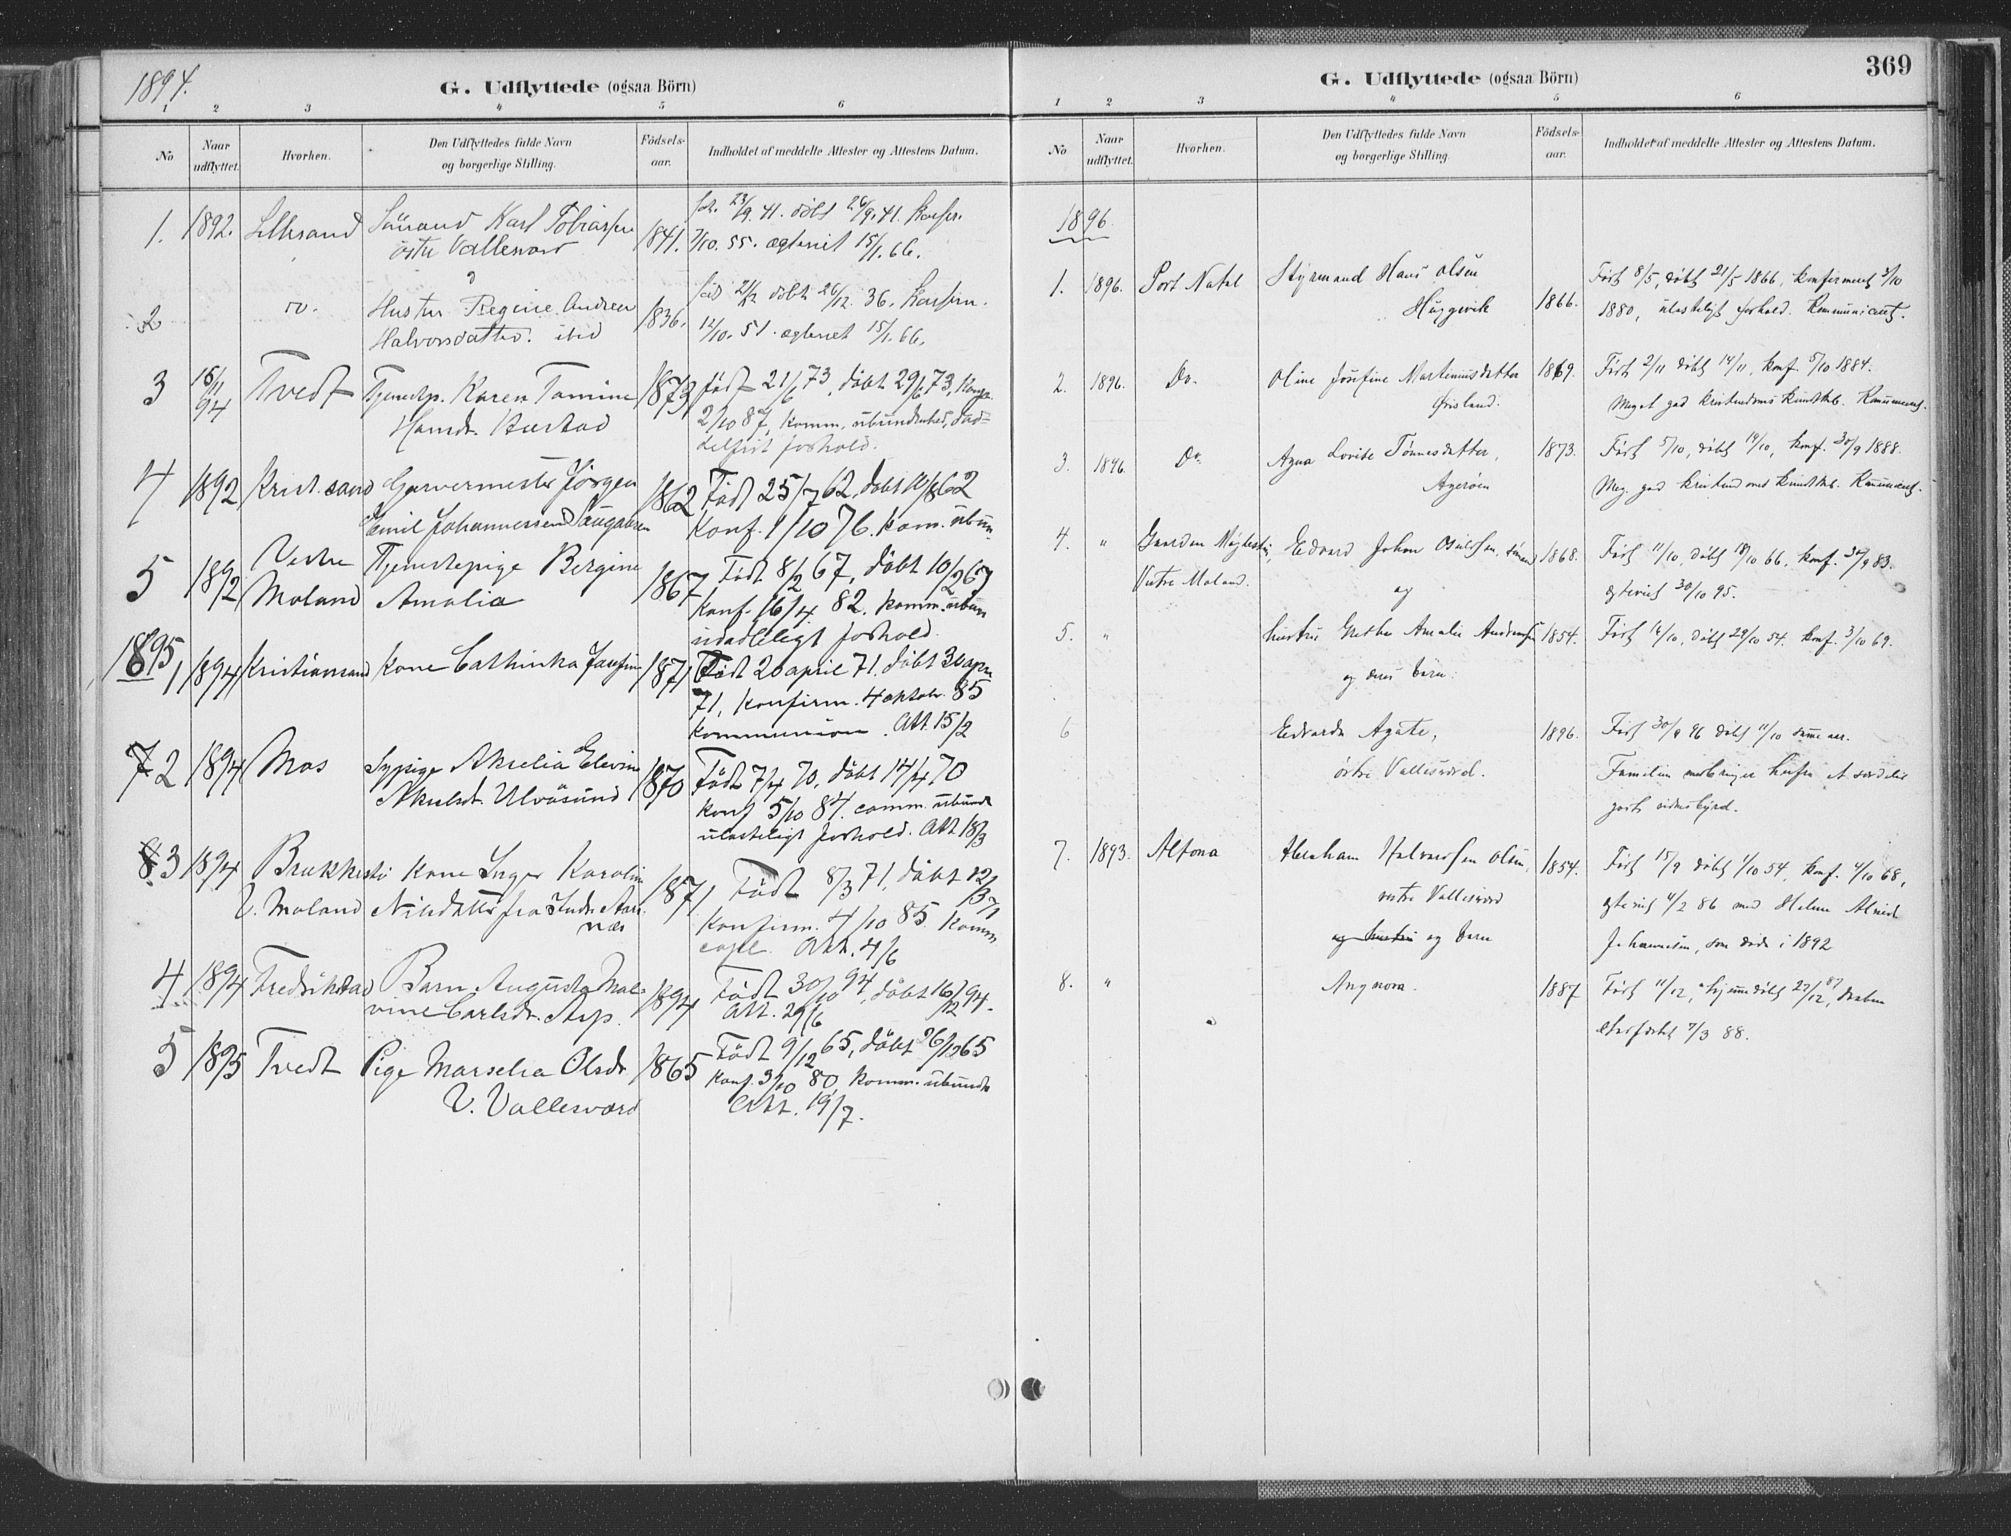 1894.
G. Udflyttede (ogsaa Börn)
1 2 3 4 5 6
No
Naar udflyttet.
Hvorhen.
Den Udflyttedes fulde Navn og borgerlige Stilling.
Födsels-aar.
Indholdet af meddelte Attester og Attestens Datum.
1. 1892. Lillesand Karl Tobiassen 1841. 23/9. 41. döbt 26/9. 41. Konfir.
östre Vallesværd 7/10. 55. ægteviet 15/1. 66.
2 do. Hustru Regine Andrea 1836. född 21/12 döbt 26/12. 36. Konfirm.
Halvorsdatter. ibid 12/10. 51. ægteviet 15/1. 66.
3 15/11 94 Tvedt Tjenestep. Karen Tomine 1873 född 21/6 73, döbt 29/6 73, Konf.
Hansdr. 2/10 87, Komm, ubundenhed, dad=
delfrit forhold.
4 1892 Krist.sand Garvermester Jörgen 1862 Född 25/7 62, döbt 10/8 62
Emil Johannessen Konf. 1/10 76. Kom. ubun.
5 1892 Vestre Moland Tjenestepige Bergine 1867 Född 8/2 67, döbt 10/2 67
Amalia Konf. 16/4. 82. Komm. ubun
udadleligt forhold.
1895
1 1894 Kristiansand Kone Cathinka 1871 Född 20 april 71. döbt 30 apr
71, Konfirm. 4 oktob. 85
Kommunion. Att 15/2
7 2 1894 Mos Sypige Akselia Elevine 1870 Född 7/4 70, döbt 14/4 70
Akselsdr. Ulvösund Konf 5/10 84. comm. ubundt
ulasteligt forhold. Att 18/3
8. 3 1894 Brækkestö Kone Inger Karoline 1871 Född 8/3 71, döbt 12/3 71
V. Moland Nilsdatter fra Indre Aars
næs Konfirm. 4/10 85. Komm
Att. 4/6
4 1894 Fredrikstad Barn Augusta Mal= 1894 Född 30/10 94, döbt 16/12 94.
vine Carlsdr. Asp. Att. 29/6
5 1895 Tvedt Pige Marselia Olsdr. 1865 Född 9/12 65, döbt 26/12 65
V. Vallesværd Konf. 3/10 80, Komm. ubundt
Att. 19/7.
G. Udflyttede (ogsaa Börn)
369
1 2 3 4 5 6
No
Naar udflyttet.
Hvorhen.
Den Udflyttedes fulde Navn og borgerlige Stilling.
Födsels-aar.
Indholdet af meddelte Attester og Attestens Datum.
1896
1. 1896. Port Natal Styrmand Hans Olsen 1866. Födt 8/5, döbt 21/5 1866, konfirmert 3/10
1880, ulasteligt forhold. Kommunicant.
2. 1896. Do. Oline Josefine Martiniusdatter 1869. Födt 2/11 döbt 14/11, konf. 5/10 1884.
Meget god kristendoms kundskab.
3. 1896. Do. Agna Lovise Tönnesdatter, 1873. Födt 5/10, döbt 19/10, konf. 30/9 1888.
Ågeröen Meg. god kristendoms kundskab.
4. " Gaarden Möglestu, Edvard Johan Osuldsen, sömand 1868. Födt 11/10, döbt 18/10 66. konf. 30/9 83.
Vestre Moland. og egteviet 30/10 95.
5. " hustru Grethe Amalie Andersen 1854. Födt 14/10, döbt 29/10 54. konf. 3/10 69.
og deres barn:
6 Edvarda Agate, 1896. Födt 30/8 96 döbt 11/10 samme aar.
östre Vallesværd. Familien medbringer herfra et særdeles
godt vidnesbyrd.
7. 1893. Altona Abraham Halvorsen Olsen, 1854. Födt 15/9 döbt 1/10 54, konf. 4/10 68,
vestre Vallesværd egteviet 4/2 86 med Helene
og hustru og barn Johannesen, som döde i 1892
8. " 1887 Födt 11/12, hjemmedöbt 27/12 87, daaben
stadfæstet 4/3 88.